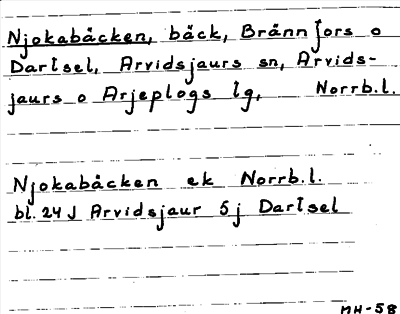 Njokabäcken, bäck, Brännfors o
Dartsel, Arvidsjaurs sn, Arvids-
jaurs o Arjeplogs lg, Norrb.l.
Njokabäcken ek Norrb.l.
bl. 24J Arvidsjaur 5j Dartsel
MH-58